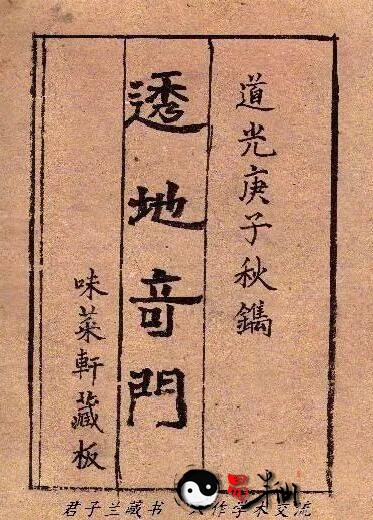 道光庚子秋鐫
透地奇門
味菜軒藏板
易
君子兰藏书
作学术交流